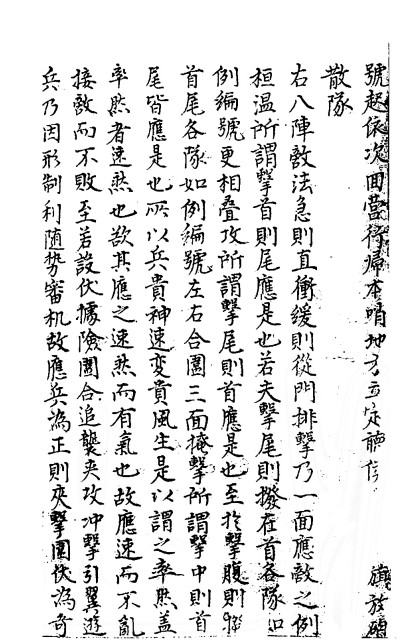 號起依次回營行歸本哨地方立定聽信 旗放砲
散隊
右八陣敎法急則直衝緩則從門排擊乃一面應敵之例
桓温所謂擊首則尾應是也若夫擊尾則撥在首各隊如
例編號更相叠攻所謂擊尾則首應是也至於擊腹則
首尾各隊如例編號左右合圍三面掩擊所謂擊中則首
尾皆應是也所以兵貴神速变貴風生是以謂之率然盖
率然者速然也欲其應之速然而有氣也故應速而不亂
接敵而不敗至若設伏據險圍合追襲夹攻冲擊引翼遊
兵乃因形制利随势審机故應兵為正則夾擊圍伏為奇